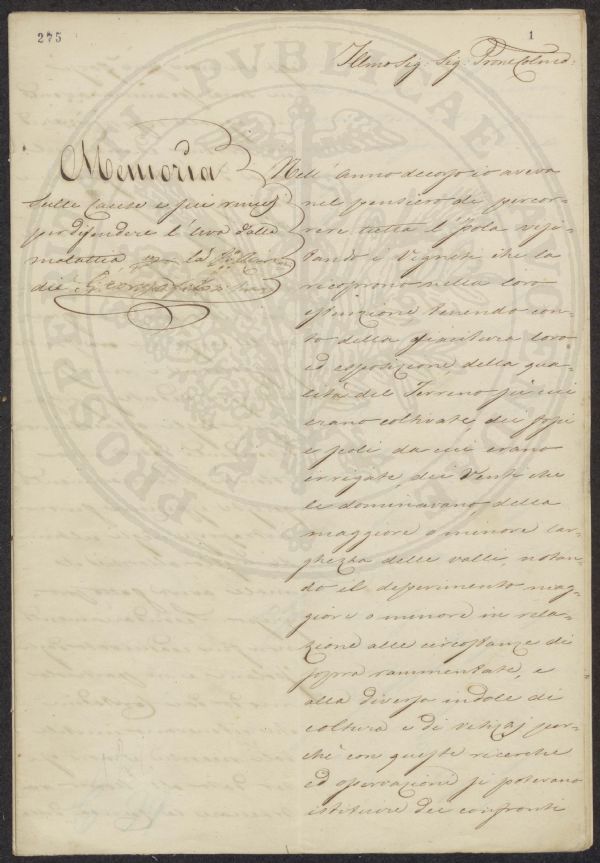 275
1
Illmo Sig. Sig. Prone Colmo:
Memoria
sulle cause e sui
per difendere l'Uva dalla
malattia
di
Nell'Anno decorso io aveva
nel pensiero di percor=
rere tutta l'Isola visi=
tando i Vigneti che la
ricoprono nella loro
estensione tenendo con=
to della giacitura loro
ed esposizione della qua=
lità del Terreno in cui
erano coltivate, dei fossi
e scoli da cui erano
irrigate, dei Venti che
le dominavano, della
maggiore o minore lar=
ghezza delle valli, notan=
do il deperimento mag=
giore o minore in rela=
zione alle circostanze di
sopra rammentate, e
alla diversa indole di
coltura e di vitigni per=
chè con queste ricerche
ed osservazioni si potevano
istituire dei confronti
PROSPERITATI PVBLICAE